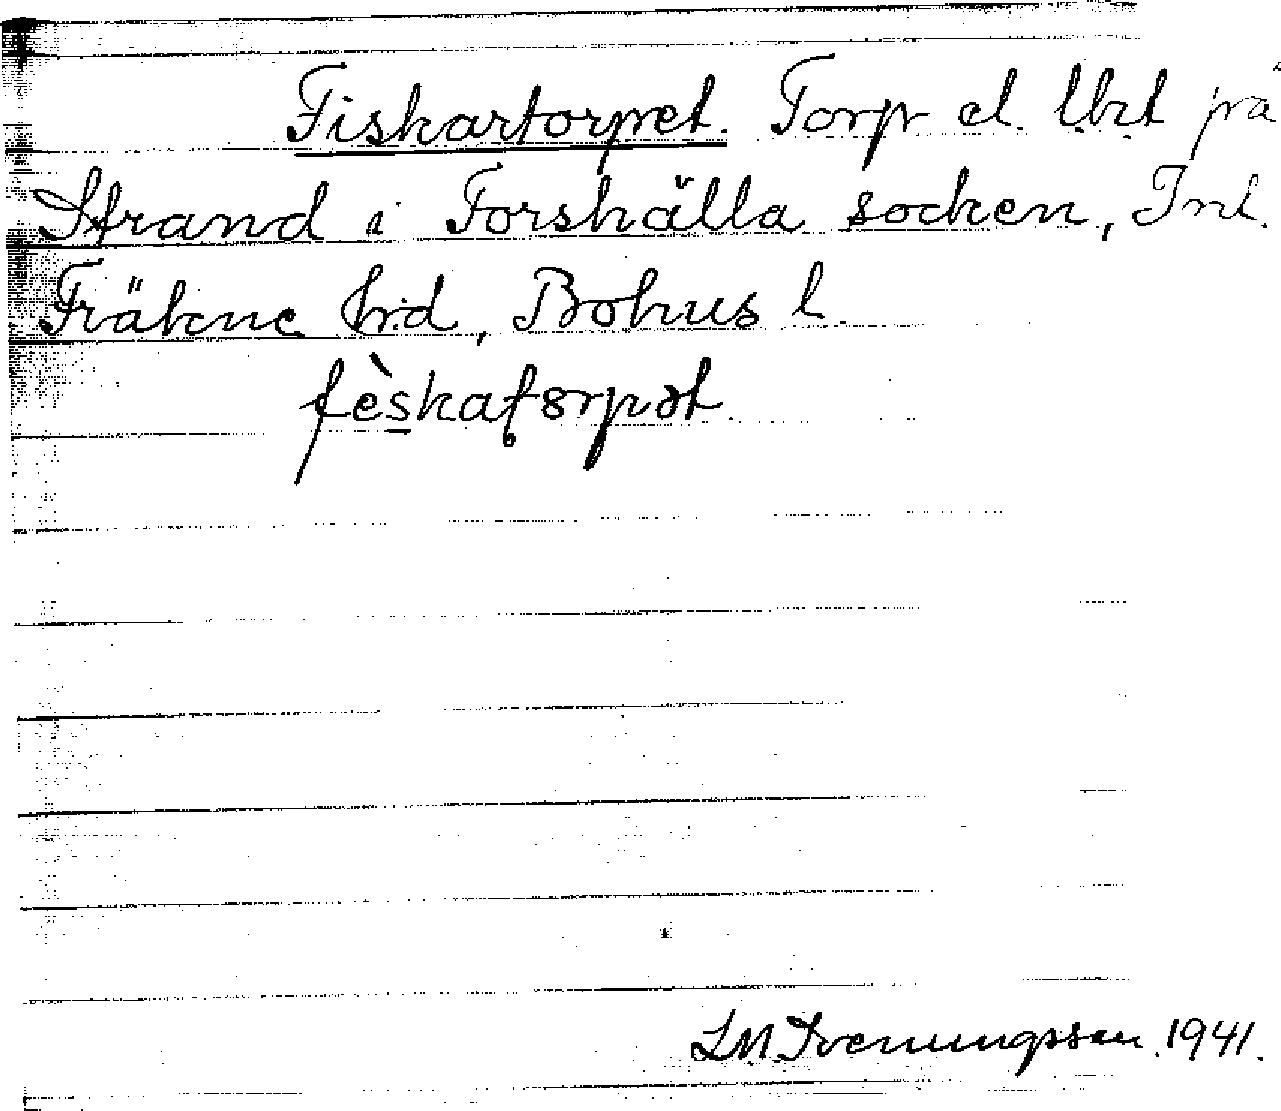 Fiskartorpet. Torp el. lht på
Strand i Forshälla socken, Inl.
Fräkne hd, Bohus l.
fèskatorpət
LM Svenungsson. 1941.